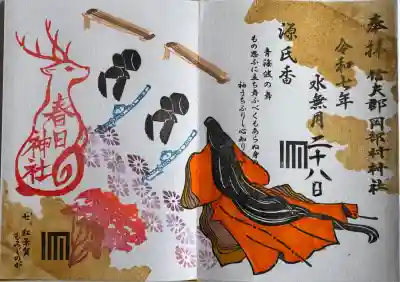 奉拝 信夫郡岡部村村社
令和七年
水無月二十八日
源氏香
青海波の舞
もの思ふに立ち舞ふべくもあらぬ身の
袖うちふりし心知りきや
春日
神社
七、紅葉賀
もみじのが